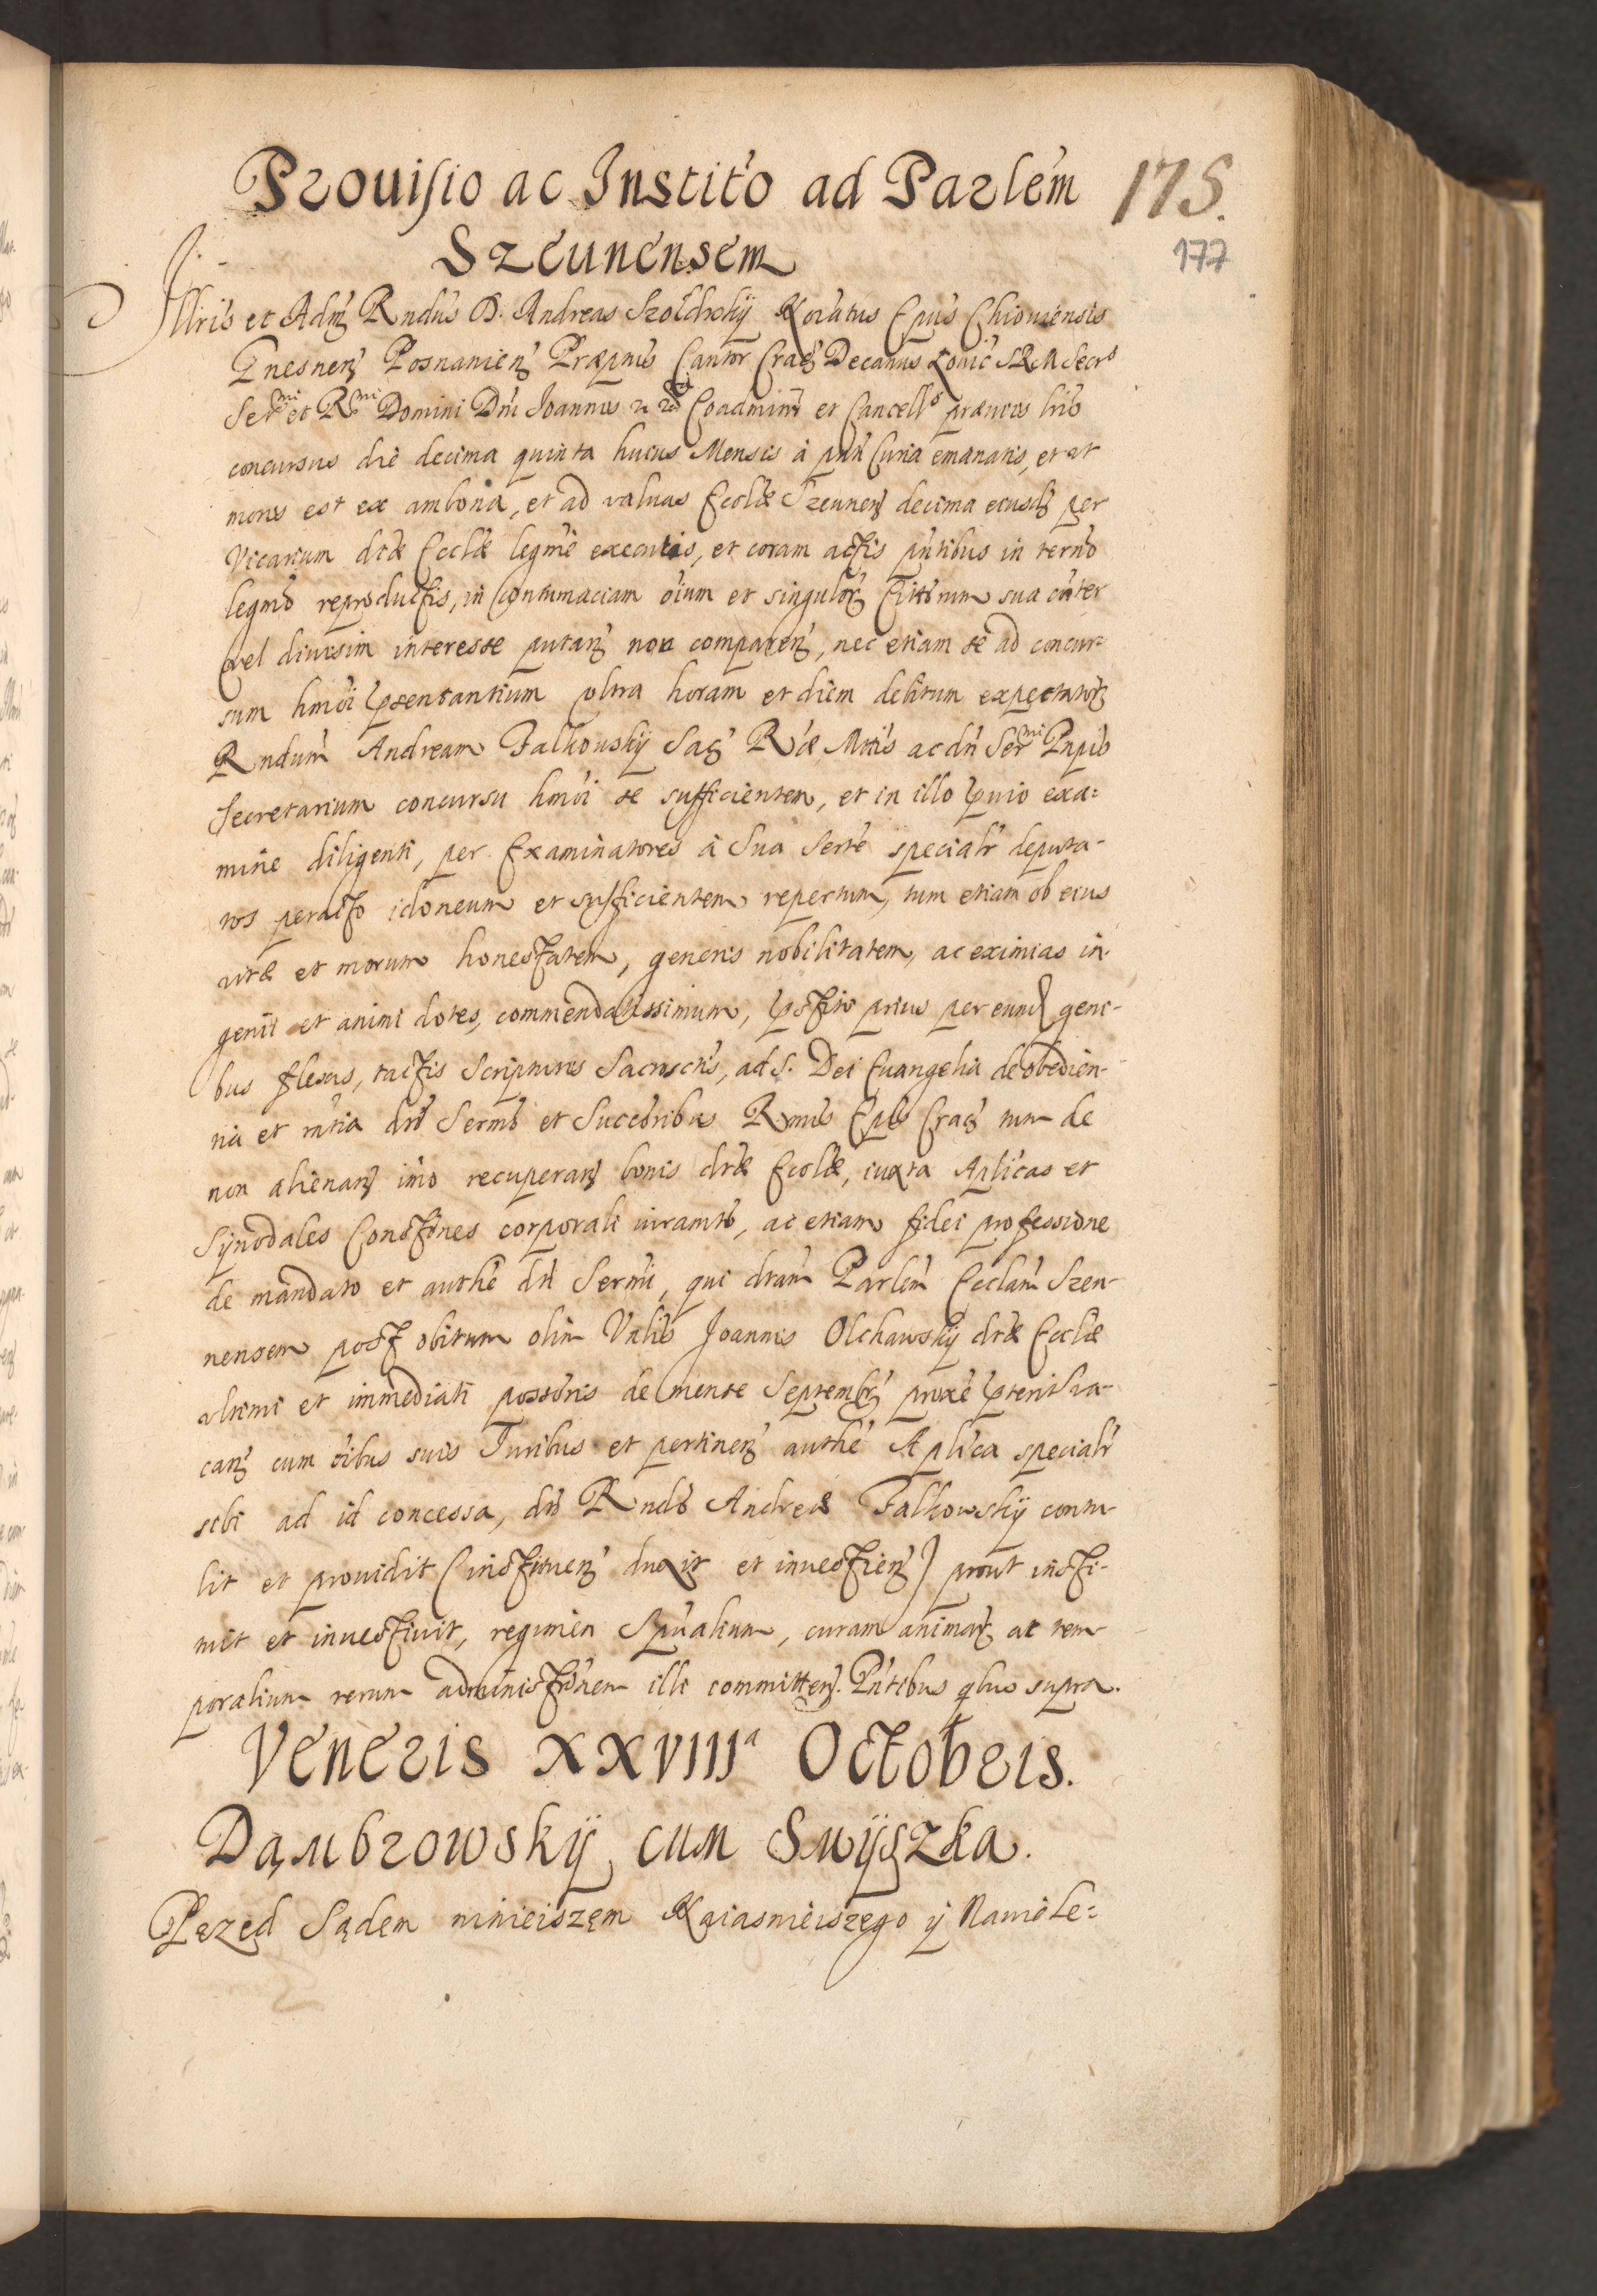 Prouisio ac Institõ ad Parlem 175.
Szeunensem 177
Illris et Adm Rndus D. Andreas Szoldrskÿ Noiatus Epus Chiouiensis
Gnesnen Posnanien Præptus Cantor Crac Decanus Louic SRM Secr
Sermi et Rmi Domini Dni Joannis Coadminr et Cancells præuiis lris
concursus die decima quinta huius Mensis à pnti Curia emanatis, et ut
moris est ex ambona, et ad valuas Ecclæ Szeunen decima eiusd per
Vicarium dtæ Ecclæ legme executis, et coram actis pntibus in termo
legmo reproductis, in contumaciam oium et singulor Crittorum sua coiter
vel diuisim interesse putan non comparen, nec etiam se ad concur-
sum hmoi psentantium vltra horam et diem debitum expectator
Rndum Andream Falkowskÿ Sac Ræ Mttis ac dni Sermi Pnpis
Secretarium concursu hmoi se sufficientem, et in illo puio exa-
mine diligenti, per Examinatores à Sua Serte specialr deputa-
tos peracto idoneum et sufficientem repertum, tum etiam ob eius
vitæ et morum honestatem, generis nobilitatem, ac eximias in-
genii et animi dotes, commendatissimum, pstito prius per eund geni-
bus flexis, tactis Scripturis Sacrosctis, ad S. Dei Euangelia de obedien-
tia et rntia dno Sermo et Succribus Rmis Epis Crac tum de
non alienan imo recuperan bonis dtæ Ecclæ, iuxta Aplicas et
Sÿnodales Constnes corporali iuramto, ac etiam fidei professione
de mandato et authe dni Sermi, qui dtam Parlem Ecclam Szeu-
nensem post obitum olim Vnlis Joannis Olchawskÿ dtæ Ecclæ
vltimi et immediati possoris de mense Septembr proxe pterit va-
can cum oibus suis Juribus et pertinen authe Aplica specialr
sibi ad id concessa, dno Rndo Andreæ Falkowskÿ contu-
lit et prouidit (instituen duxit et inuestien) prout insti-
tuit et inuestiuit, regimen Spualium, curam animar ac tem-
poralium rerum administronem illi committen. Pntibus qbus supra.
Veneris XXVIIIa Octobris.
Dąmbrowskÿ cum Smÿszka.
Pezed Sądem ninieiszęm Naiasnieiszego ÿ Nawiele-